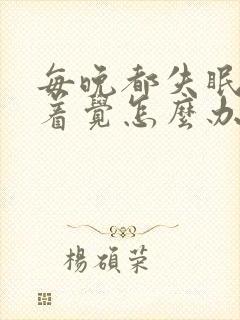 每晚都失眠
着覺怎麼办
楊碩荣